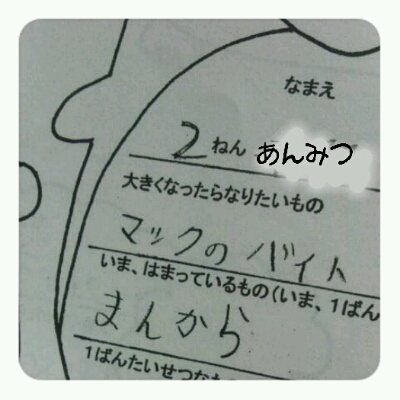 なまえ
2ねん あんみつ
大きくなったらなりたいもの
マックのバイト
いま、はまっているもの(いま、1ばん
まんから
1ばんたいせつなも